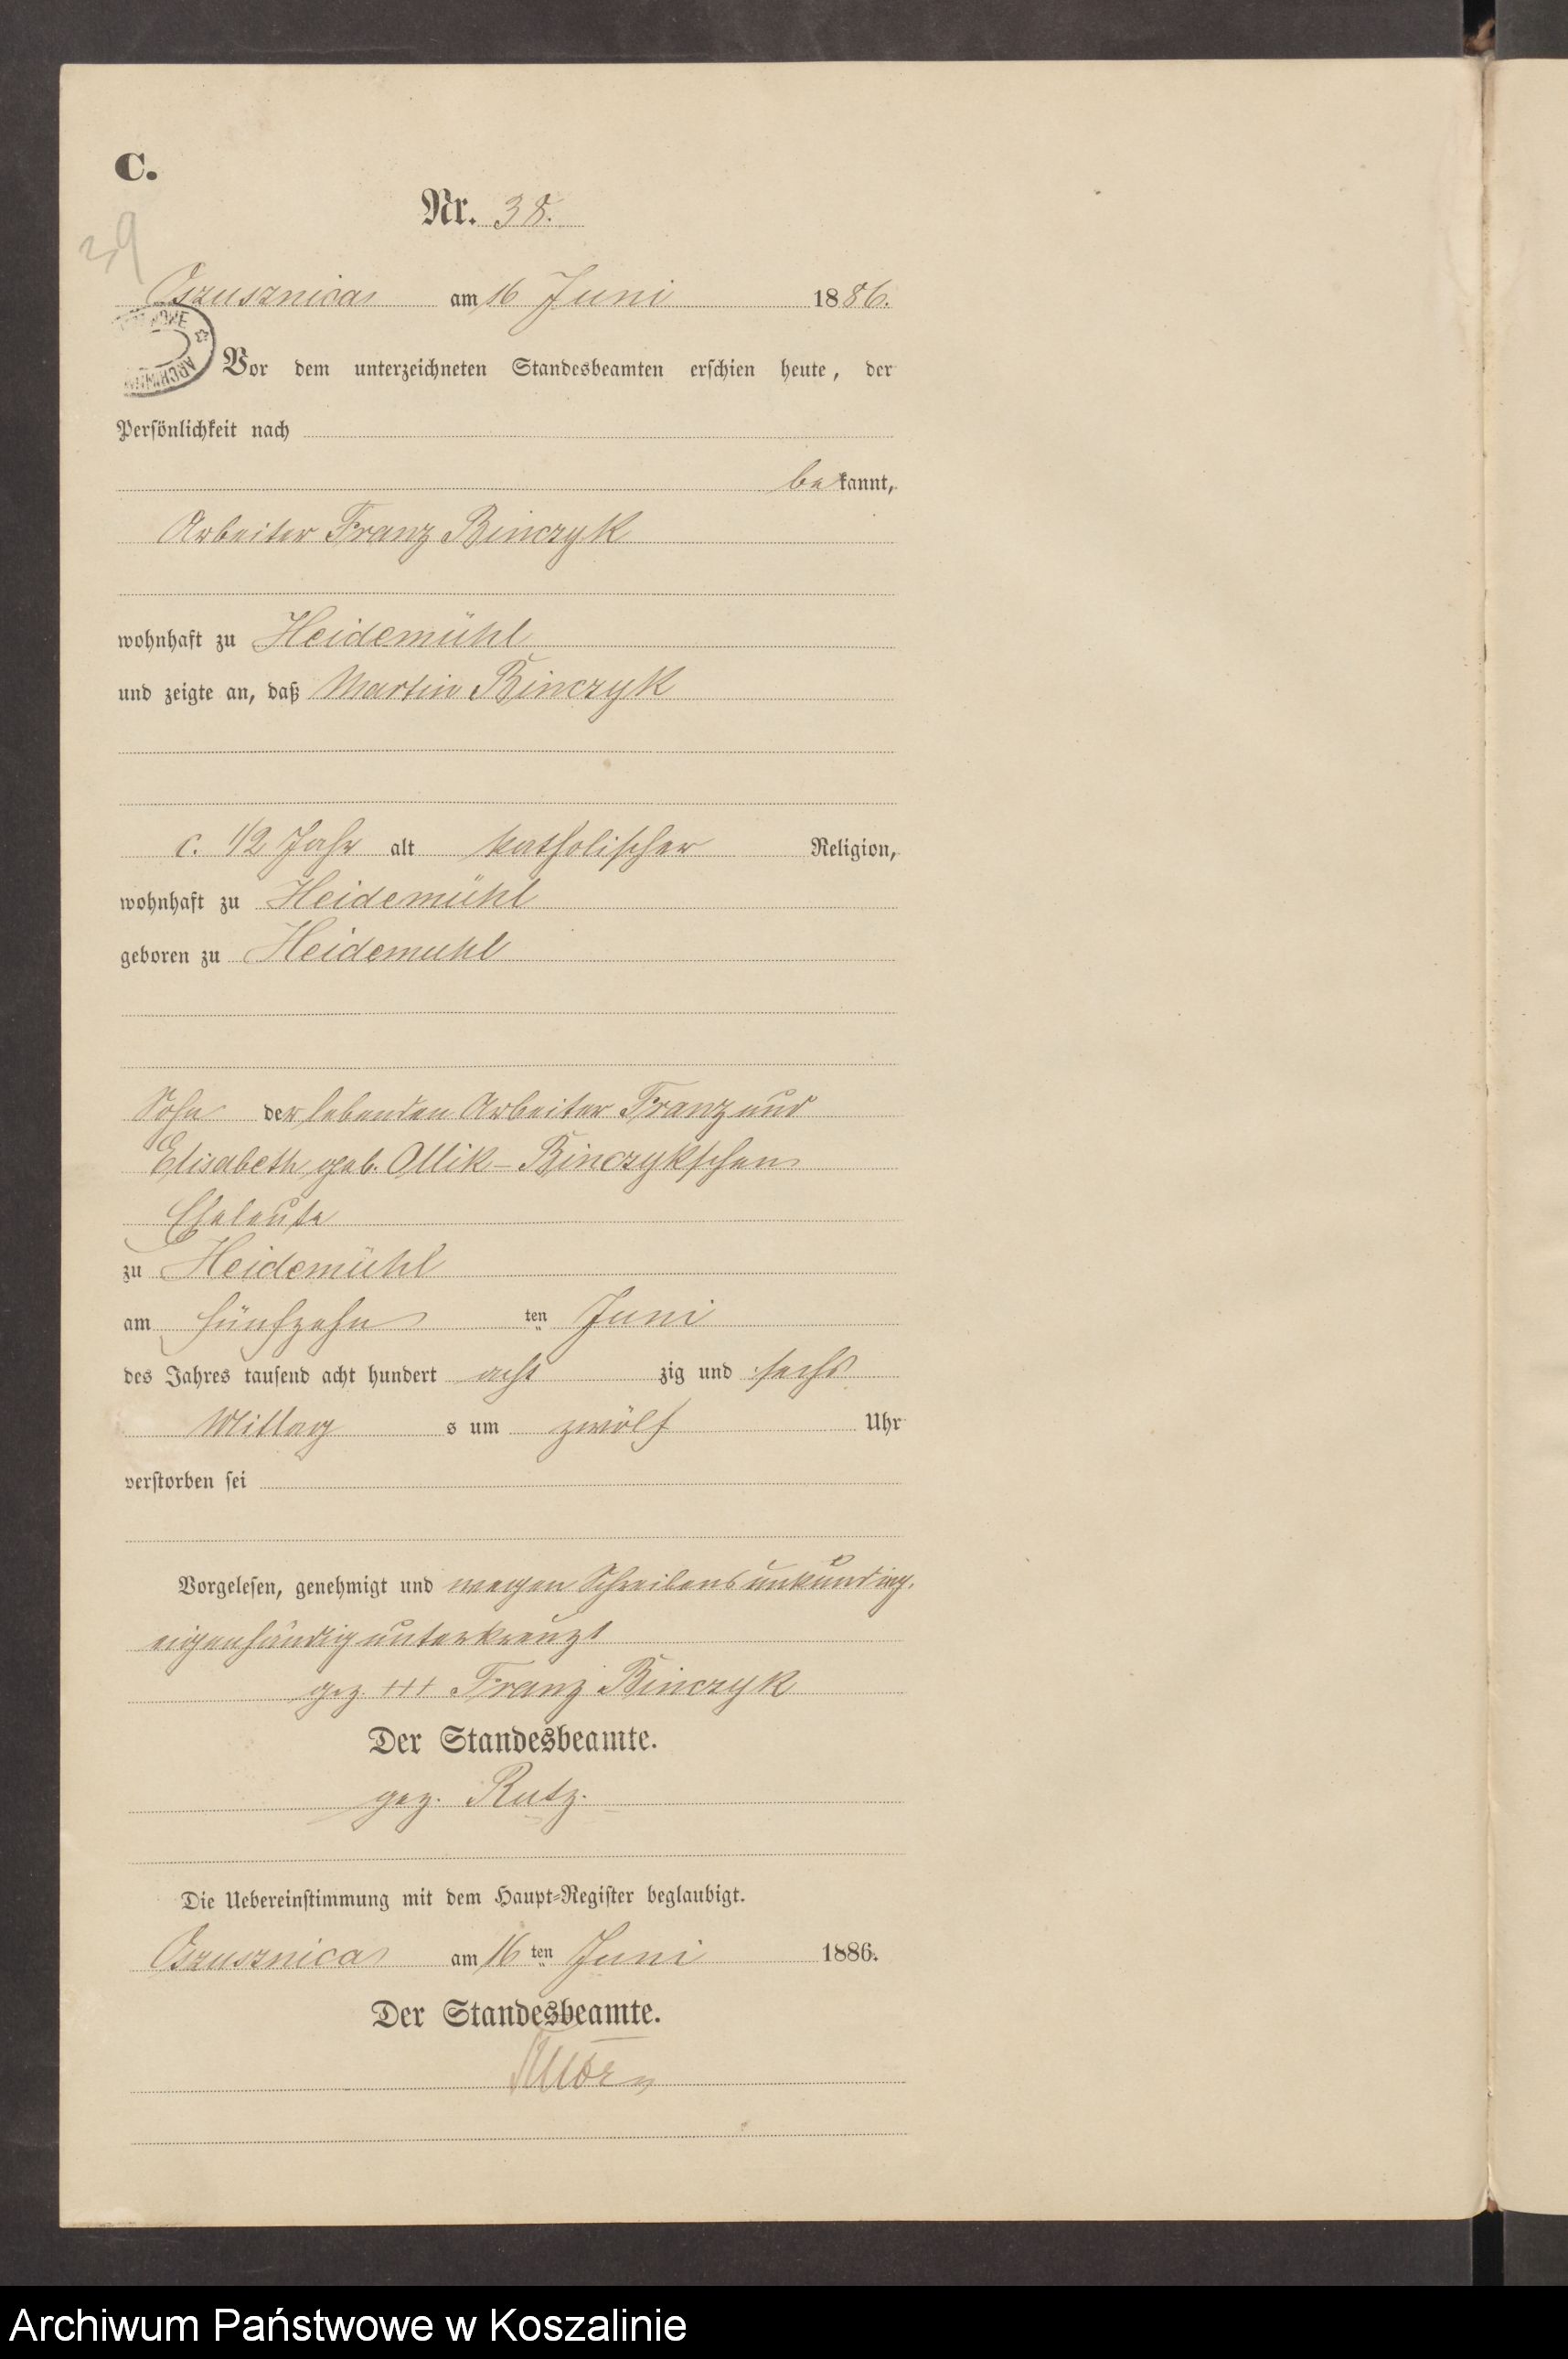 C.
Nr. 38.
39
Oszusznica am 16 Juni 1886.
Vor dem unterzeichneten Standesbeamten erschien heute, der
Persönlichkeit nach
bekannt,
Arbeiter Franz Binczyk
wohnhaft zu Heidemühl
und zeigte an, daß Martin Binczyk
c. 1/2 Jahr alt katholischer Religion,
wohnhaft zu Heidemühl
geboren zu Heidemuhl
Sohn der lebenden Arbeiter Franz und
Elisabeth geb. Ollik-Binczykschen
Eheleute
zu Heidemühl
am fünfzehn ten Juni
des Jahres tausend acht hundert acht zig und sechs
Mittag s um zwölf Uhr
verstorben sei
Vorgelesen, genehmigt und wegen Schreibensunkundig.
eigenhändig unterkreuzt
gez. +++ Franz Binczyk
Der Standesbeamte.
gez. Rutz.
Die Uebereinstimmung mit dem Haupt-Register beglaubigt.
Oszusznica am 16 ten Juni 1886.
Der Standesbeamte.
Archiwum Państwowe w Koszalinie